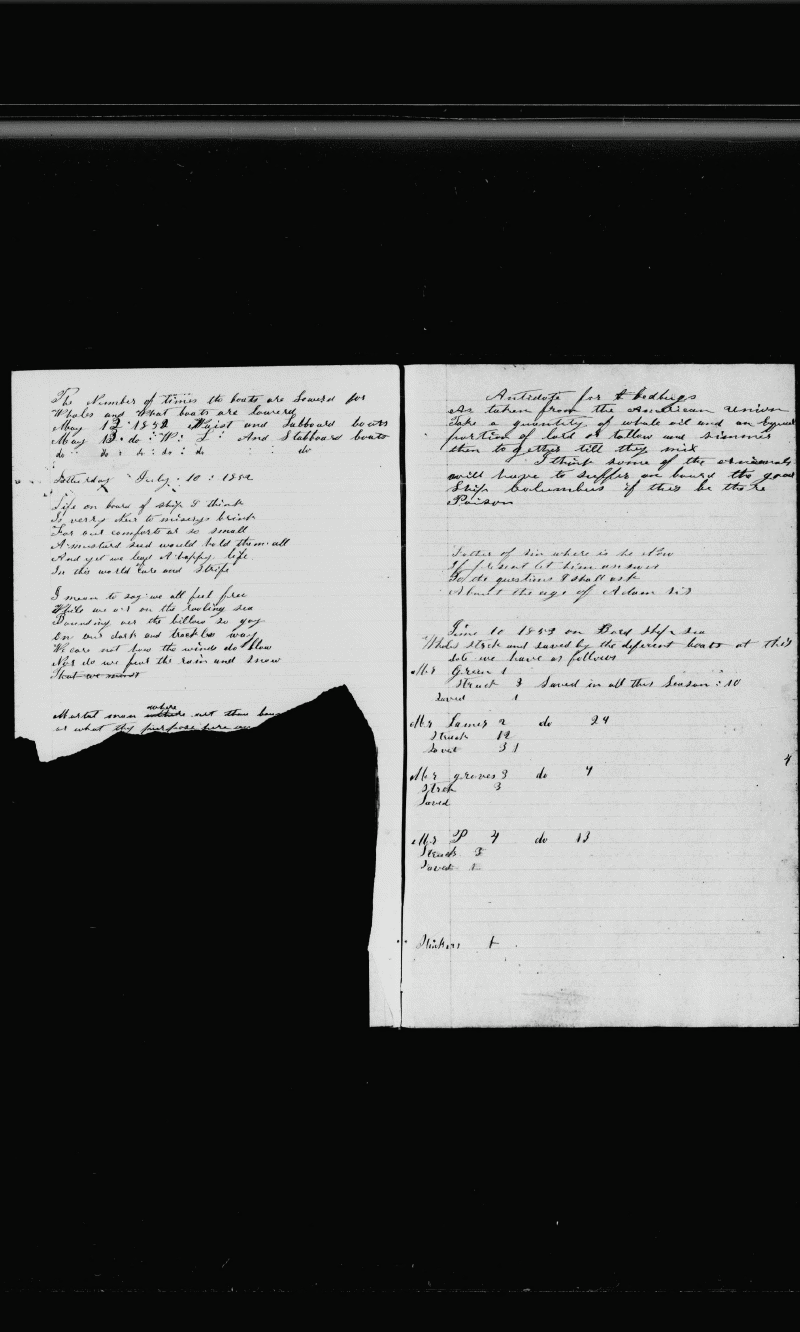 The Number of times the boats are Lowerd for
Whales and What boats are lowerd
May 12 · 1852 Waist and Labboard boats
May 13 · do · W · L · And Stabboard boats
do · do · do · do · do do
Saturday July · 10 : 1852
Life on board of ship I think
Is verry near to miserys brink
For our comforts ar so small
A mustard seed would hold them all
And yet we lead A happy life
In this world Care and Strife
I mean to say we all feel free
While we ar on the rooling sea
Bounding oer the billow so gay
On our dark and trackless way
We care not how the winds do blow
Nor do we feel the rain and snow
That we must
Mortal man where art thou
or what thy purpose here
Antidote for bedbugs
As taken from the American Union
Take a quantity of whale oil and an Equal
portion of lard or tallow and simmer
them to gether till they mix
I think some of the animals
will have to suffer on board the good
Ship Columbus if this be there
Poison
Father of sin where is he Now
If present let him answer
To the questions I shall ask
About the age of Adam Sir
June 10 1852 on Bord Ship
Whales Strck and saved by the deferent boats at this
date we have as follows
Mr Green 1
Struck 3 Saved in all this Season : 10
Saved 1
Mr 2 do 24
Struck 12
Saved 31
Mr groves 3 do 4
Strck 3
Saved
4
Mr P 4 do 13
Struck 3
Saved 1